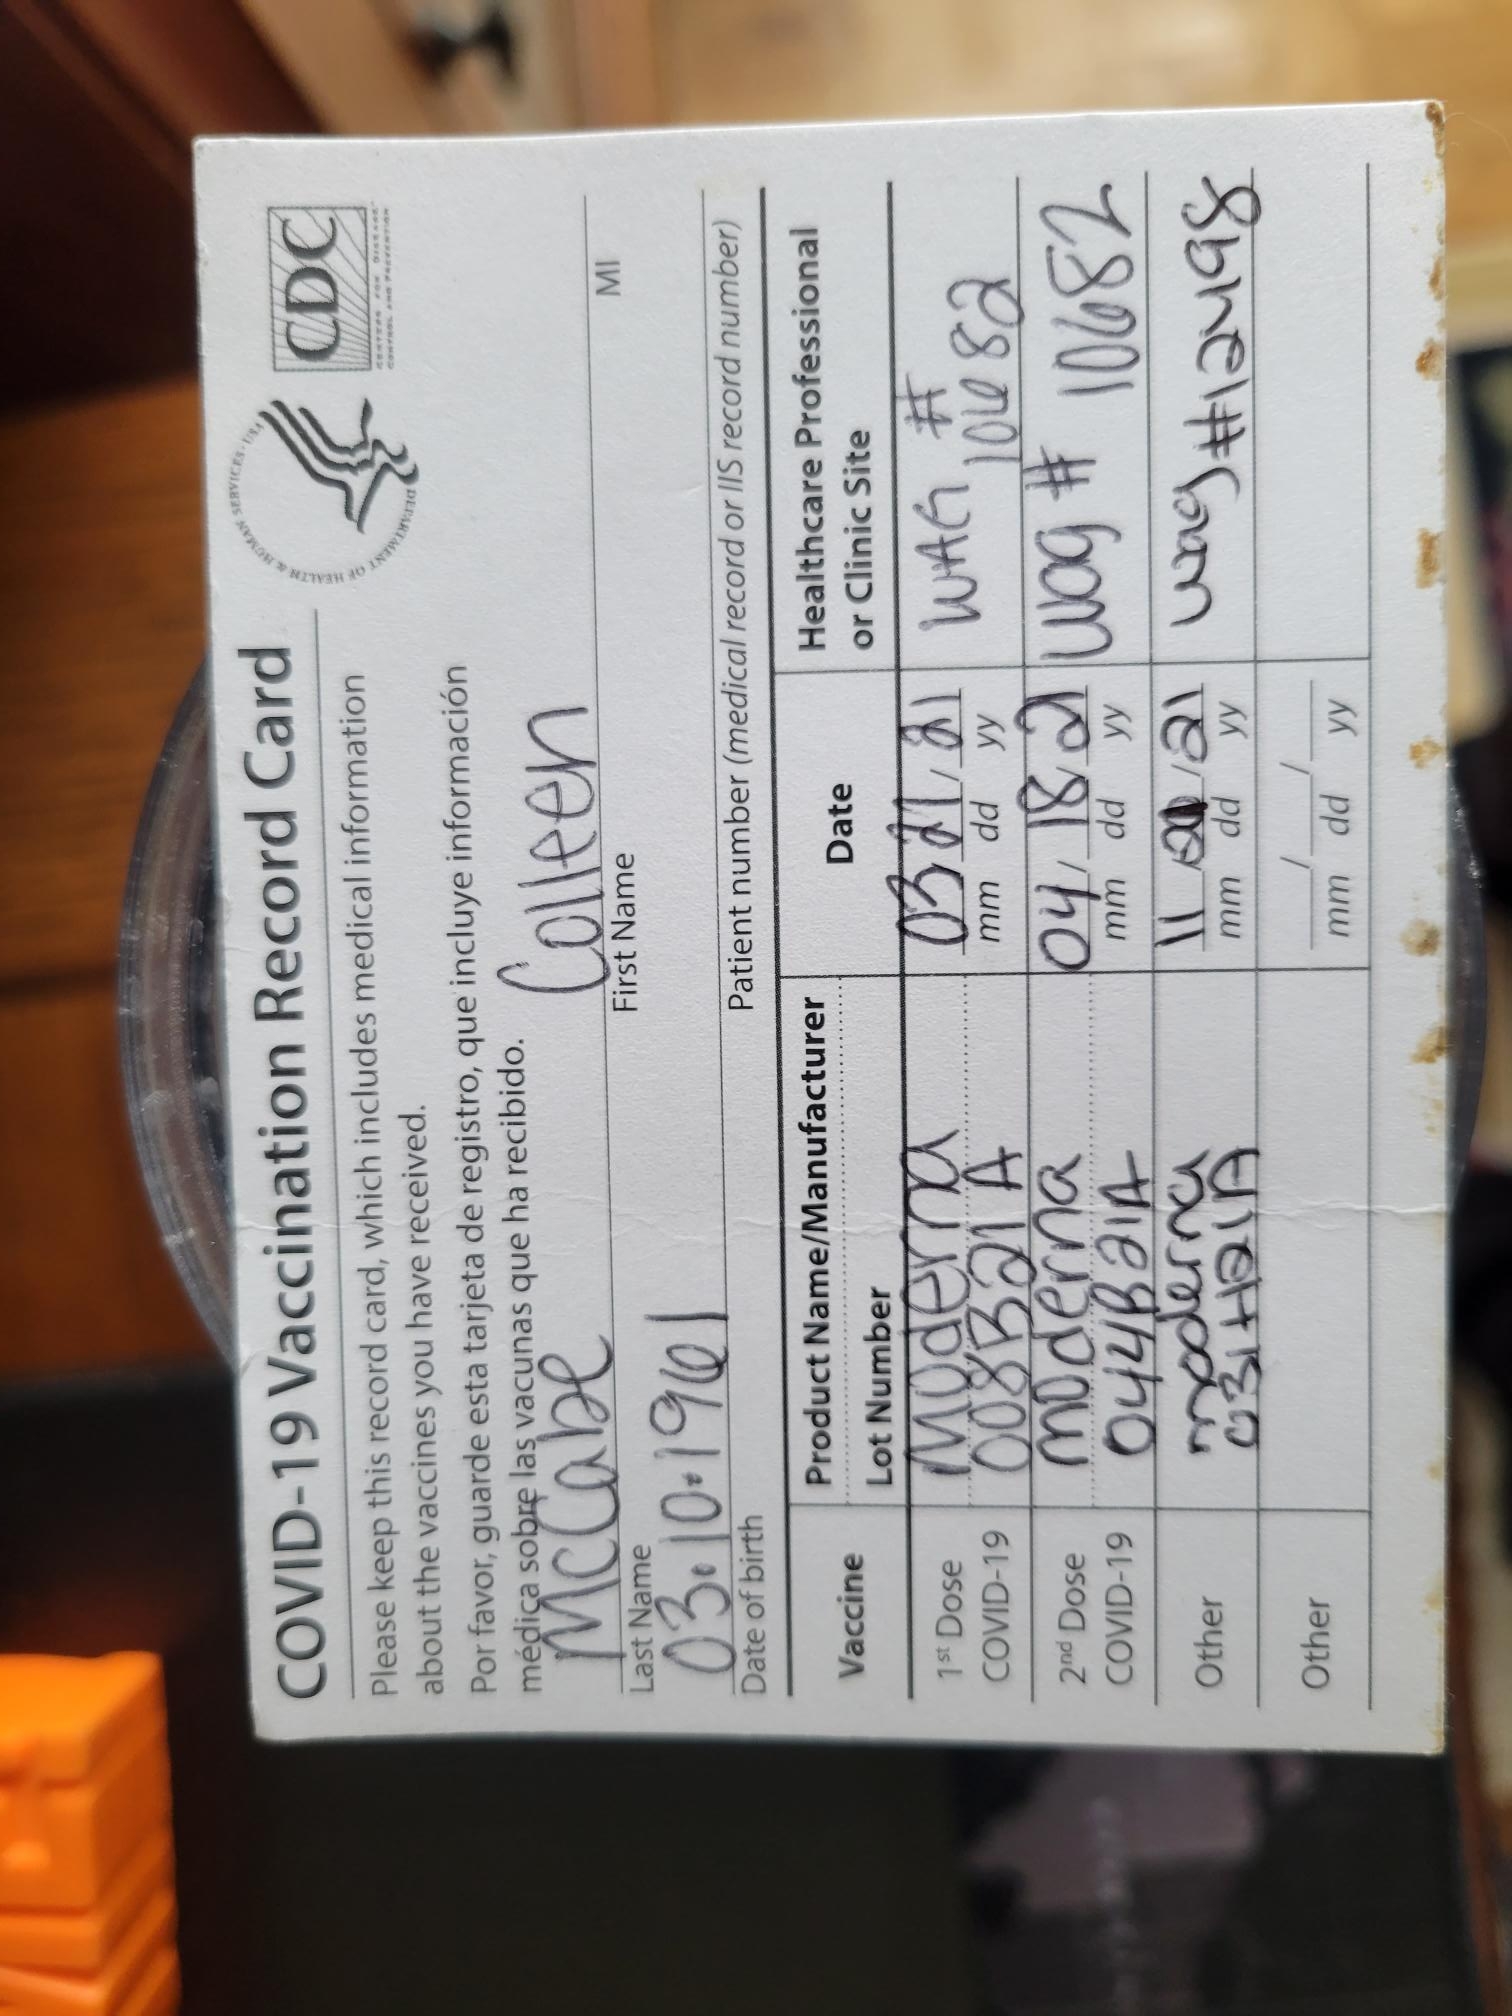 COVID-19 Vaccination Record Card
Please keep this record card, which includes medical information
about the vaccines you have received.
Por favor, guarde esta tarjeta de registro, que incluye información
médica sobre las vacunas que ha recibido.
DEPARTMENT OF HEALTH & HUMAN SERVICES · USA
CDC
CENTERS FOR DISEASE
CONTROL AND PREVENTION
McCabe Colleen
Last Name First Name MI
03.10.1961
Date of birth Patient number (medical record or IIS record number)
Vaccine Product Name/Manufacturer Date Healthcare Professional
Lot Number or Clinic Site
1st Dose Moderna 03/21/21 WAG #
COVID-19 008B21A mm dd yy 10682
2nd Dose moderna 04/18/21 wag # 10682
COVID-19 044B21A mm dd yy
Other moderna 11/ /21 wag #12498
031H21A mm dd yy
Other / /
mm dd yy